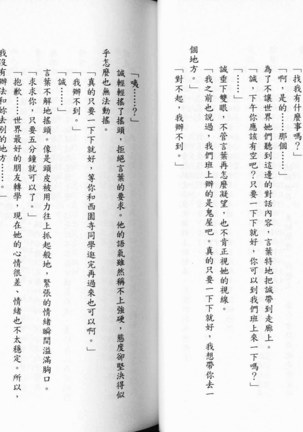 「找我有什麼事嗎?」
「啊,是的……那個……」
為了不讓世界她們聽到這邊的對話內容,言葉特地把誠帶到走廊上。
「誠,下午你應該有空吧?只要一下下就好,你可以到我們班上來一下嗎?」
「對不起,我辦不到。」
誠垂下雙眼,不管言葉再怎麼凝望,也不肯正視她的視線。
「我之前也說過,我們班上辦的是鬼屋吧,真的只要一下下就好,我想帶你去一
個地方。」
「對不起,我辦不到。」
「咦……?」
誠輕輕搖了搖頭,拒絕言葉的要求。他的語氣雖然稱不上強硬,態度卻堅決得似
乎怎麼也無法動搖。
「真的只要一下下就好,等你和西園寺同學逛完再過來也可以啊。」
「我辦不到。」
「誠……」
言葉不解地搖了搖頭,像是頭皮被用力往上抓起般地,緊張的情緒瞬間溢滿胸口。
「求求你,只要五分鐘就可以了。」
「抱歉……世界最好的朋友轉學,現在她的心情很差、情緒也不太穩定,所以,
我沒有辦法和妳去別的地方……。」